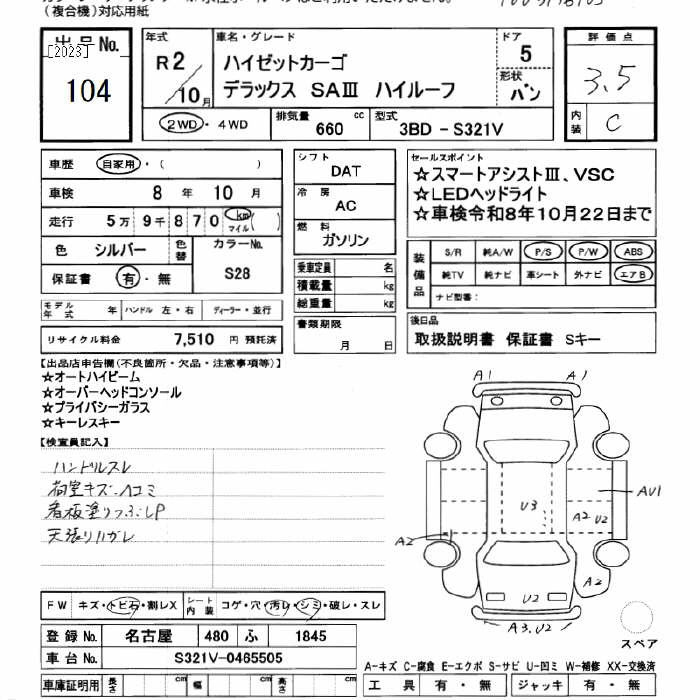 (複合機)対応用紙
出品No.
[2023]
104
年式
R2/10月
車名・グレード
ハイゼットカーゴ
デラックス SAⅢ ハイルーフ
ドア
5
形状
バン
2WD・4WD
排気量 660 cc
型式 3BD-S321V
評価点
3.5
内装 C
車歴 自家用・( )
車検 8年 10月
走行 5万 9千 8 7 0 km マイル ( )
色 シルバー 色替 カラーNo. S28
保証書 有・無
モデル年式 年 ハンドル 左・右 ディーラー・並行
リサイクル料金 7,510 円 預託済
シフト
DAT
冷房
AC
燃料
ガソリン
乗車定員 名
積載量 kg
総重量 kg
書類期限
月 日
セールスポイント
☆スマートアシストⅢ、VSC
☆LEDヘッドライト
☆車検令和8年10月22日まで
装備品 S/R 純A/W P/S P/W ABS
純TV 純ナビ 車シート 外ナビ エアB
ナビ型番:
後日品
取扱説明書 保証書 Sキー
【出品店申告欄(不良箇所・欠品・注意事項等)】
☆オートハイビーム
☆オーバーヘッドコンソール
☆プライバシーガラス
☆キーレスキー
【検査員記入】
ハンドルスレ
荷室キズ、ヘコミ
看板塗りつぶしP
天張りハガレ
A1 A1
U3
AU1
A2 U2
A2
A2
U2
A3,U2
スペア
FW キズ・トビ石・割レX シート内装 コゲ・穴・汚レ・シミ・破レ・スレ
登録No. 名古屋 480 ふ 1845
車台No. S321V-0465505
車庫証明用 長さ cm 幅 cm 高さ cm
A-キズ C-腐食 E-エクボ S-サビ U-凹ミ W-補修 XX-交換済
工具 有・無 ジャッキ 有・無